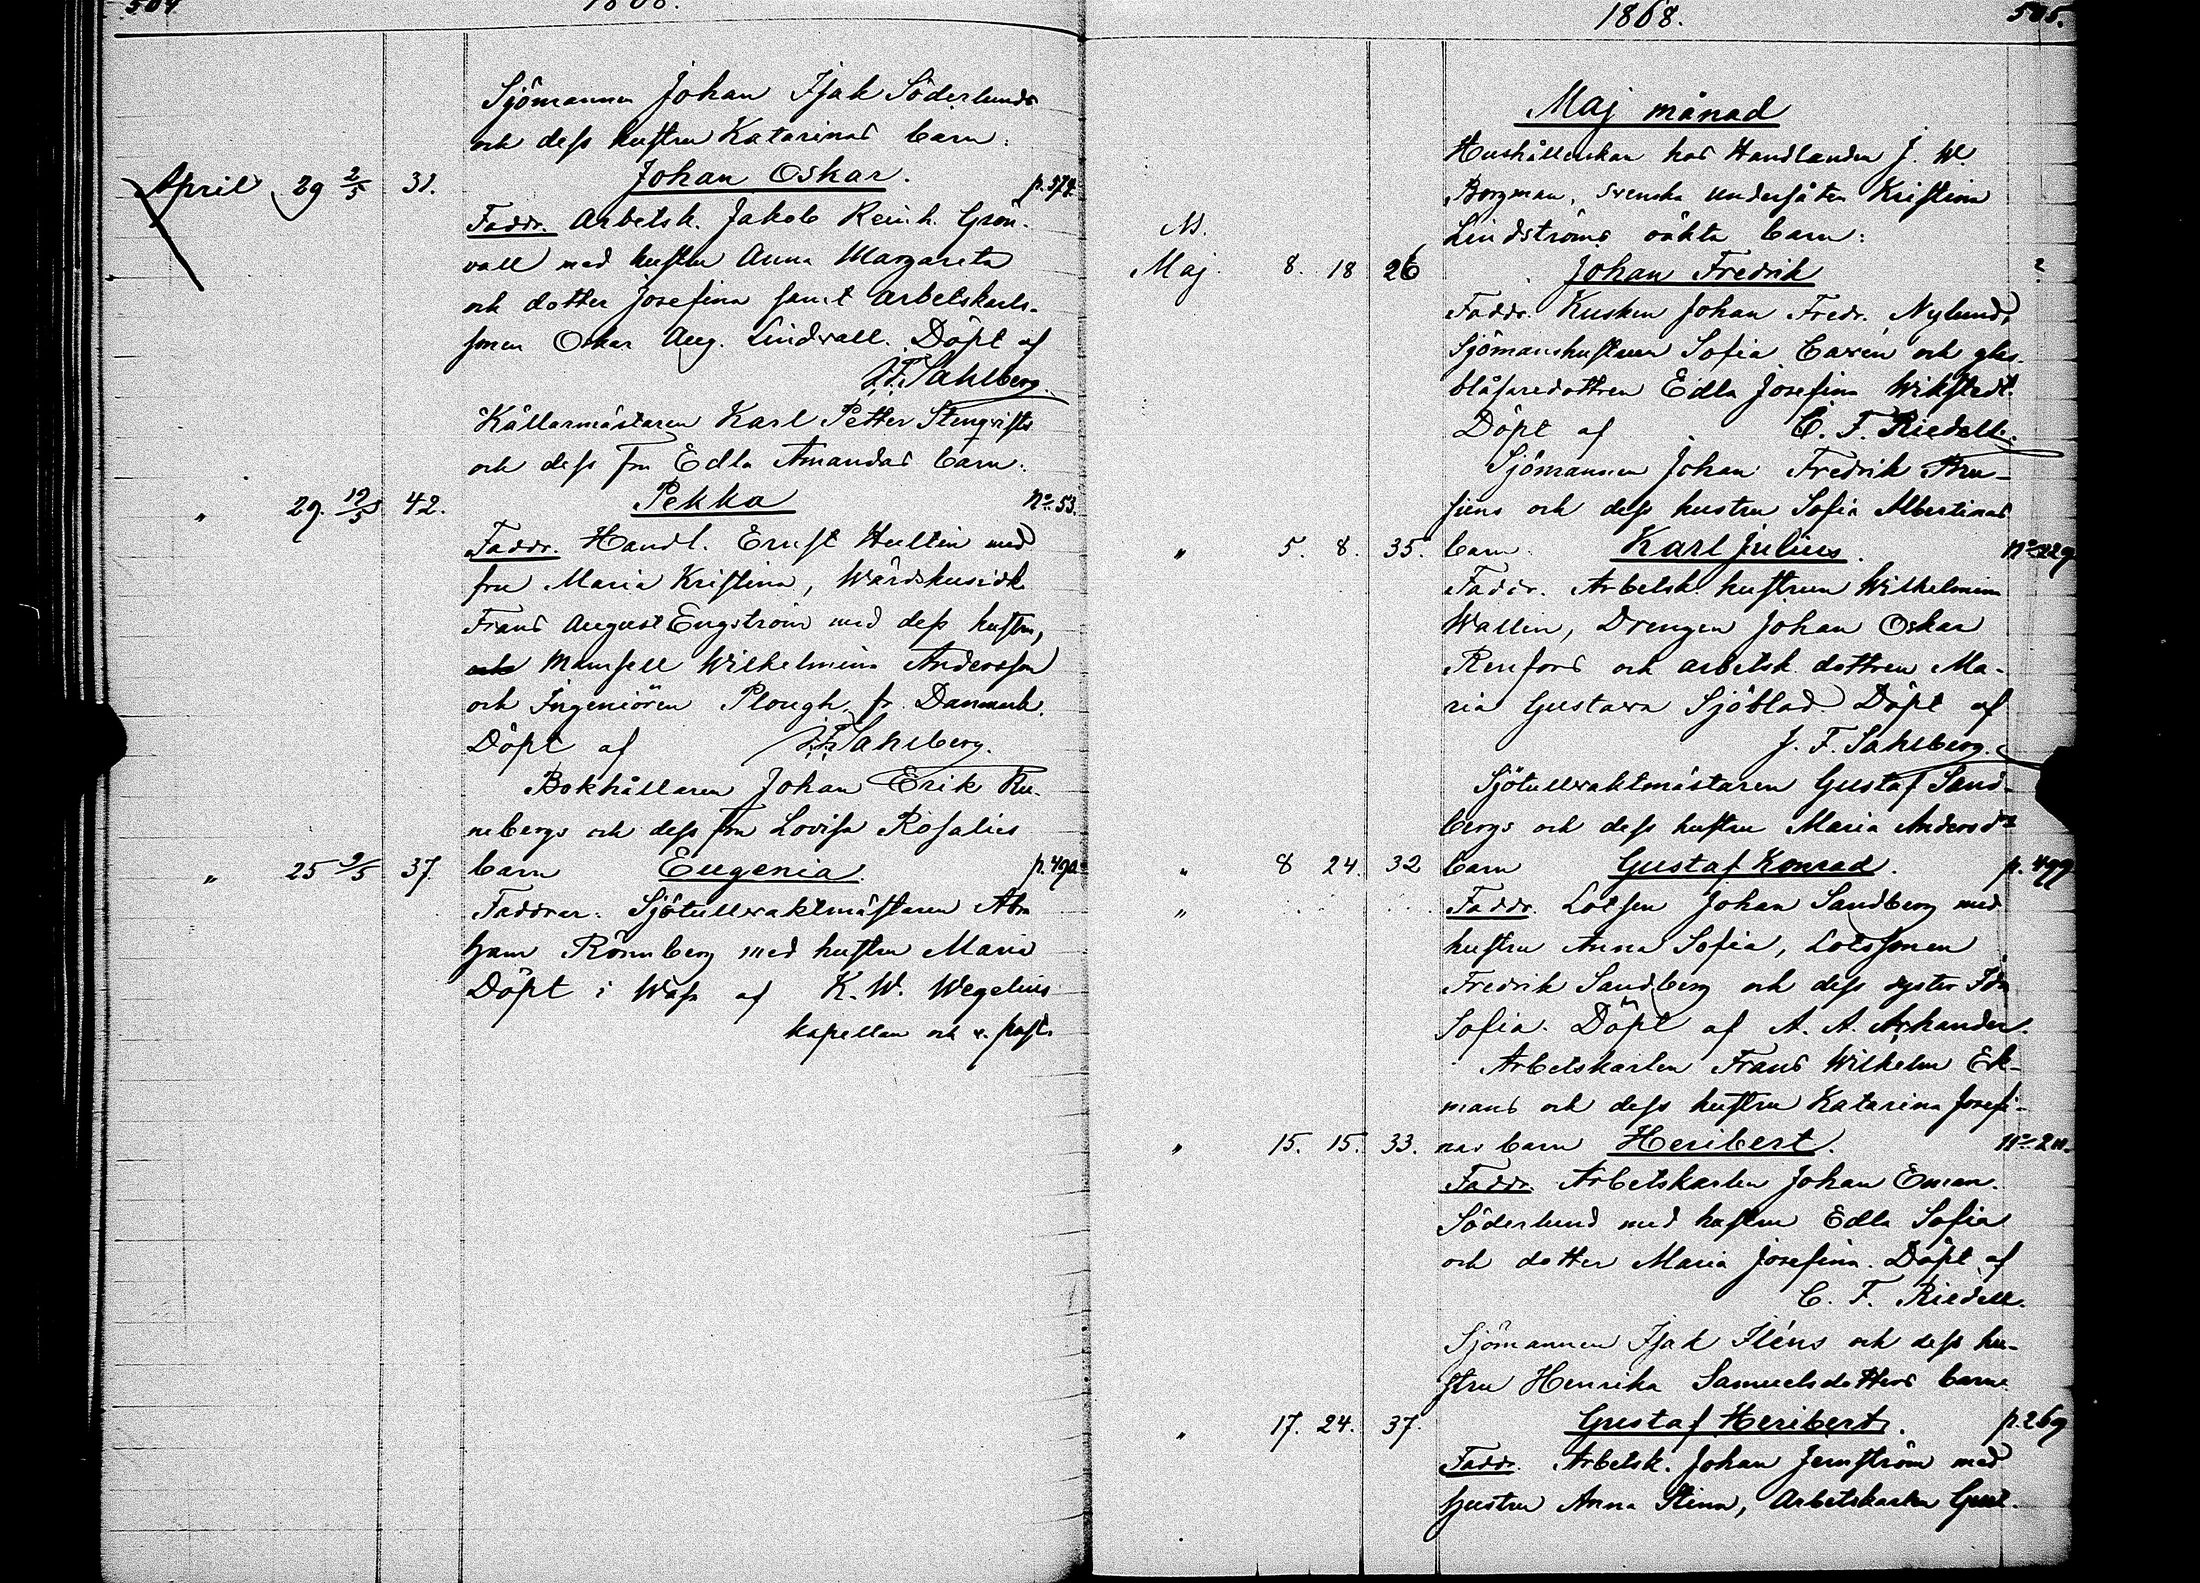 504
1868.
Sjömannen Johan Isak Söderlunds
och dess hustru Katarinas barn:
April 29 2/5 31. Johan Oskar. p. 374.
Faddr. Arbetsk. Jakob Reinh. Grön-
vall med hustru Anna Margareta
och dotter Josefina samt arbetskarls-
sonen Oskar Aug. Lindvall. Döpt af
J. F. Sahlberg.
Källarmästaren Karl Petter Stenqvists
och dess fru Edla Amandas barn:
" 29. 19/5 42. Pekka No 53.
Faddr. Handl. Ernst Hultin med
fru Maria Kristina, Wärdshusidk
Frans August Engström med dess hustru,
Mamsell Wilhelmina Andersson
och Ingeniören Plough fr. Danmark.
Döpt af J. F. Sahlberg.
Bokhållaren Johan Erik Ru-
nebergs och dess fru Lovisa Rosalies
" 25 9/5 37 barn Eugenia. p. 490
Faddrar. Sjötullvaktmästaren Abra
ham Rönnberg med hustru Maria
Döpt i Wasa af K. W. Wegelius
kapellan och v. past.
1868. 505.
Maj månad
Hushållerskan hos Handlanden J. W.
Borgman, svenska undersåten Kristina
Ns.
Lindströms oäkta barn:
Maj. 8. 18 26 Johan Fredrik ?
Faddr. Kusken Johan Fredr. Nylund,
Sjömanshustrun Sofia Carén och glas-
blåsaredottren Edla Josefina Wikstedt.
Döpt af C. F. Riedell.
Sjömannen Johan Fredrik
och dess hustru Sofia Albertinas
" 5. 8. 35. barn Karl Julius. No 229
Faddr. Arbetsk. hustrun Wilhelmina
Wallin, Drengen Johan Oskar
Renfors och arbetsk. dottren Ma-
ria Gustava Sjöblad. Döpt af
J. F. Sahlberg.
Sjötullvaktmästaren Gustaf Sand-
bergs och dess hustru Maria Andersdrs
" 8 24. 32 barn Gustaf Konrad. p. 499
" Faddr. Lotsen Johan Sandberg med
hustru Anna Sofia, Lotssonen
Fredrik Sandberg och dess syster Ida
Sofia. Döpt af A. A. Arhander.
Arbetskarlen Frans Wilhelm Ek-
mans och dess hustru Katarina Josefi-
" 15. 15. 33. nas barn Heribert. No 211.
Faddr. Arbetskarlen Johan Eman.
Söderlund med hustru Edla Sofia
och dotter Maria Josefina. Döpt af
C. F. Riedell.
Sjömannen Isak Iléns och dess hu-
stru Henrika Samuelsdotters barn
" 17. 24. 37. Gustaf Heribert. p. 269
Faddr. Arbetsk. Johan Jernström med
hustru Anna Stina, Arbetskarlen Gust.